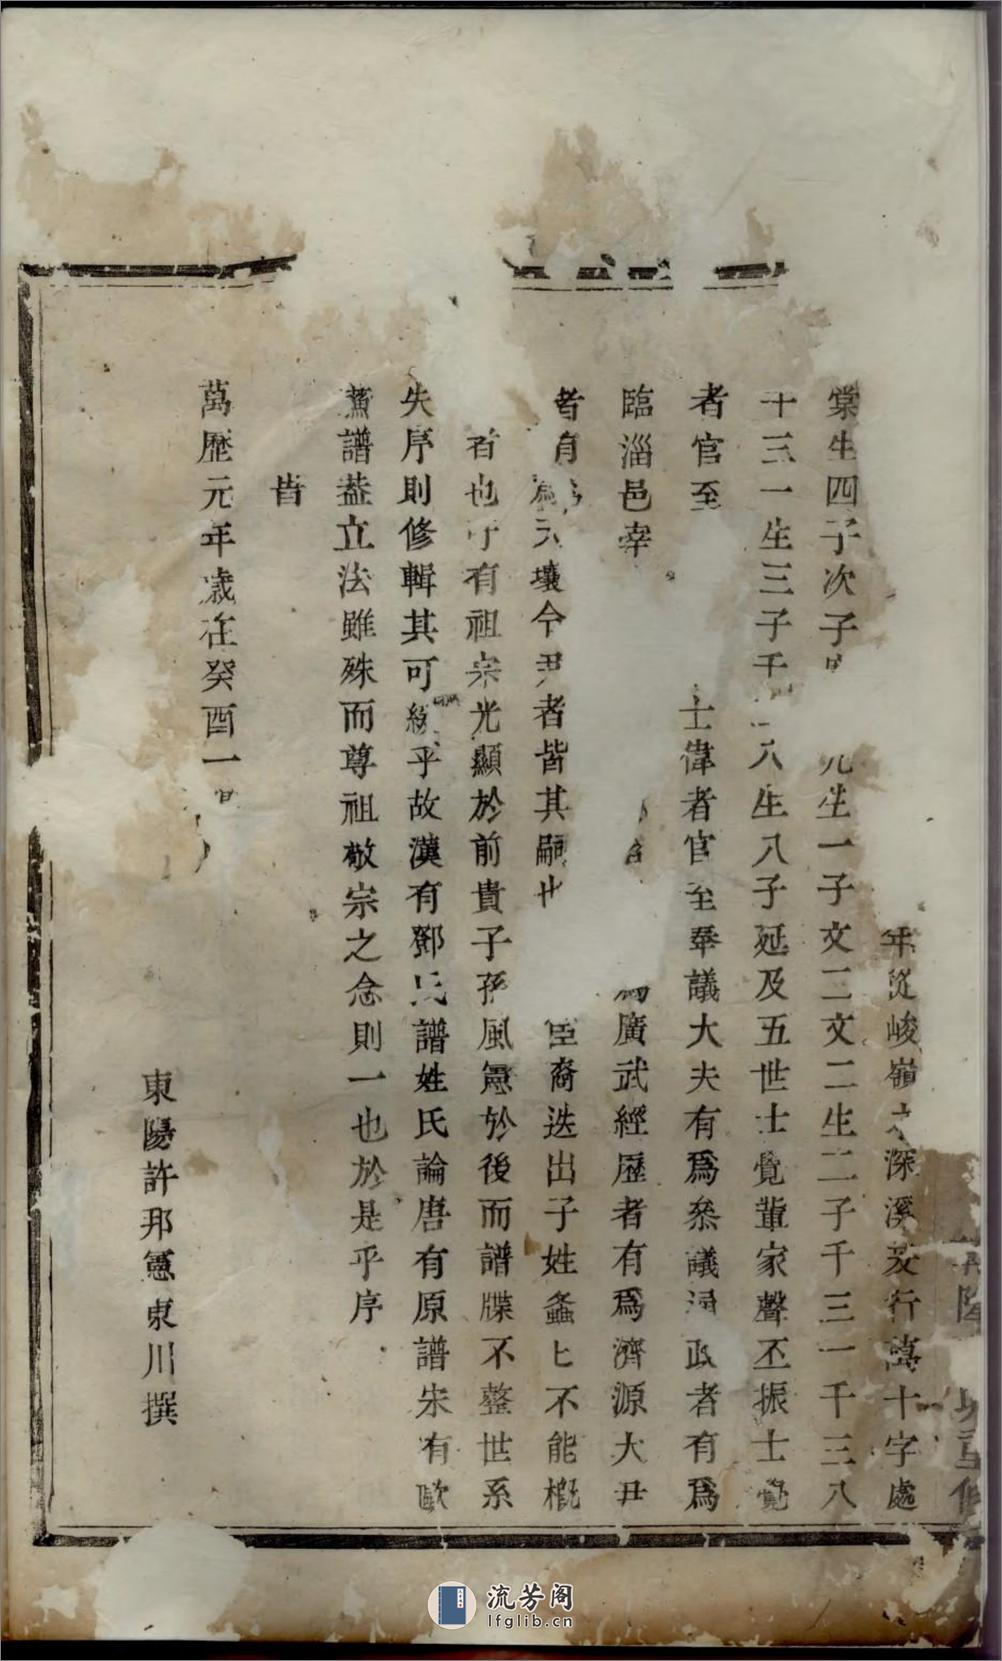 年從峻嶺之深溪支行萬十字處
棠生四子次子生一子文二文二生二子千三一千三八
十三一生三子千三八生八子延及五世士覺輩家聲丕振士覺
者官至士偉者官至奉議大夫有爲叅議政者有爲
臨淄邑宰爲廣武經歷者有爲濟源大尹
者有爲天壤令尹者皆其嗣也臣裔迭出子姓螽匕不能概
者也有祖宗光顯於前貴子孫風憲於後而譜牒不整世系
失序則修輯其可緩乎故漢有鄧氏譜姓氏論唐有原譜宋有歐
蘇譜葢立法雖殊而尊祖敬宗之念則一也於是乎序
旹
萬歷元年歲在癸酉一
東陽許邦憲東川撰
流芳阁
lfglib.cn